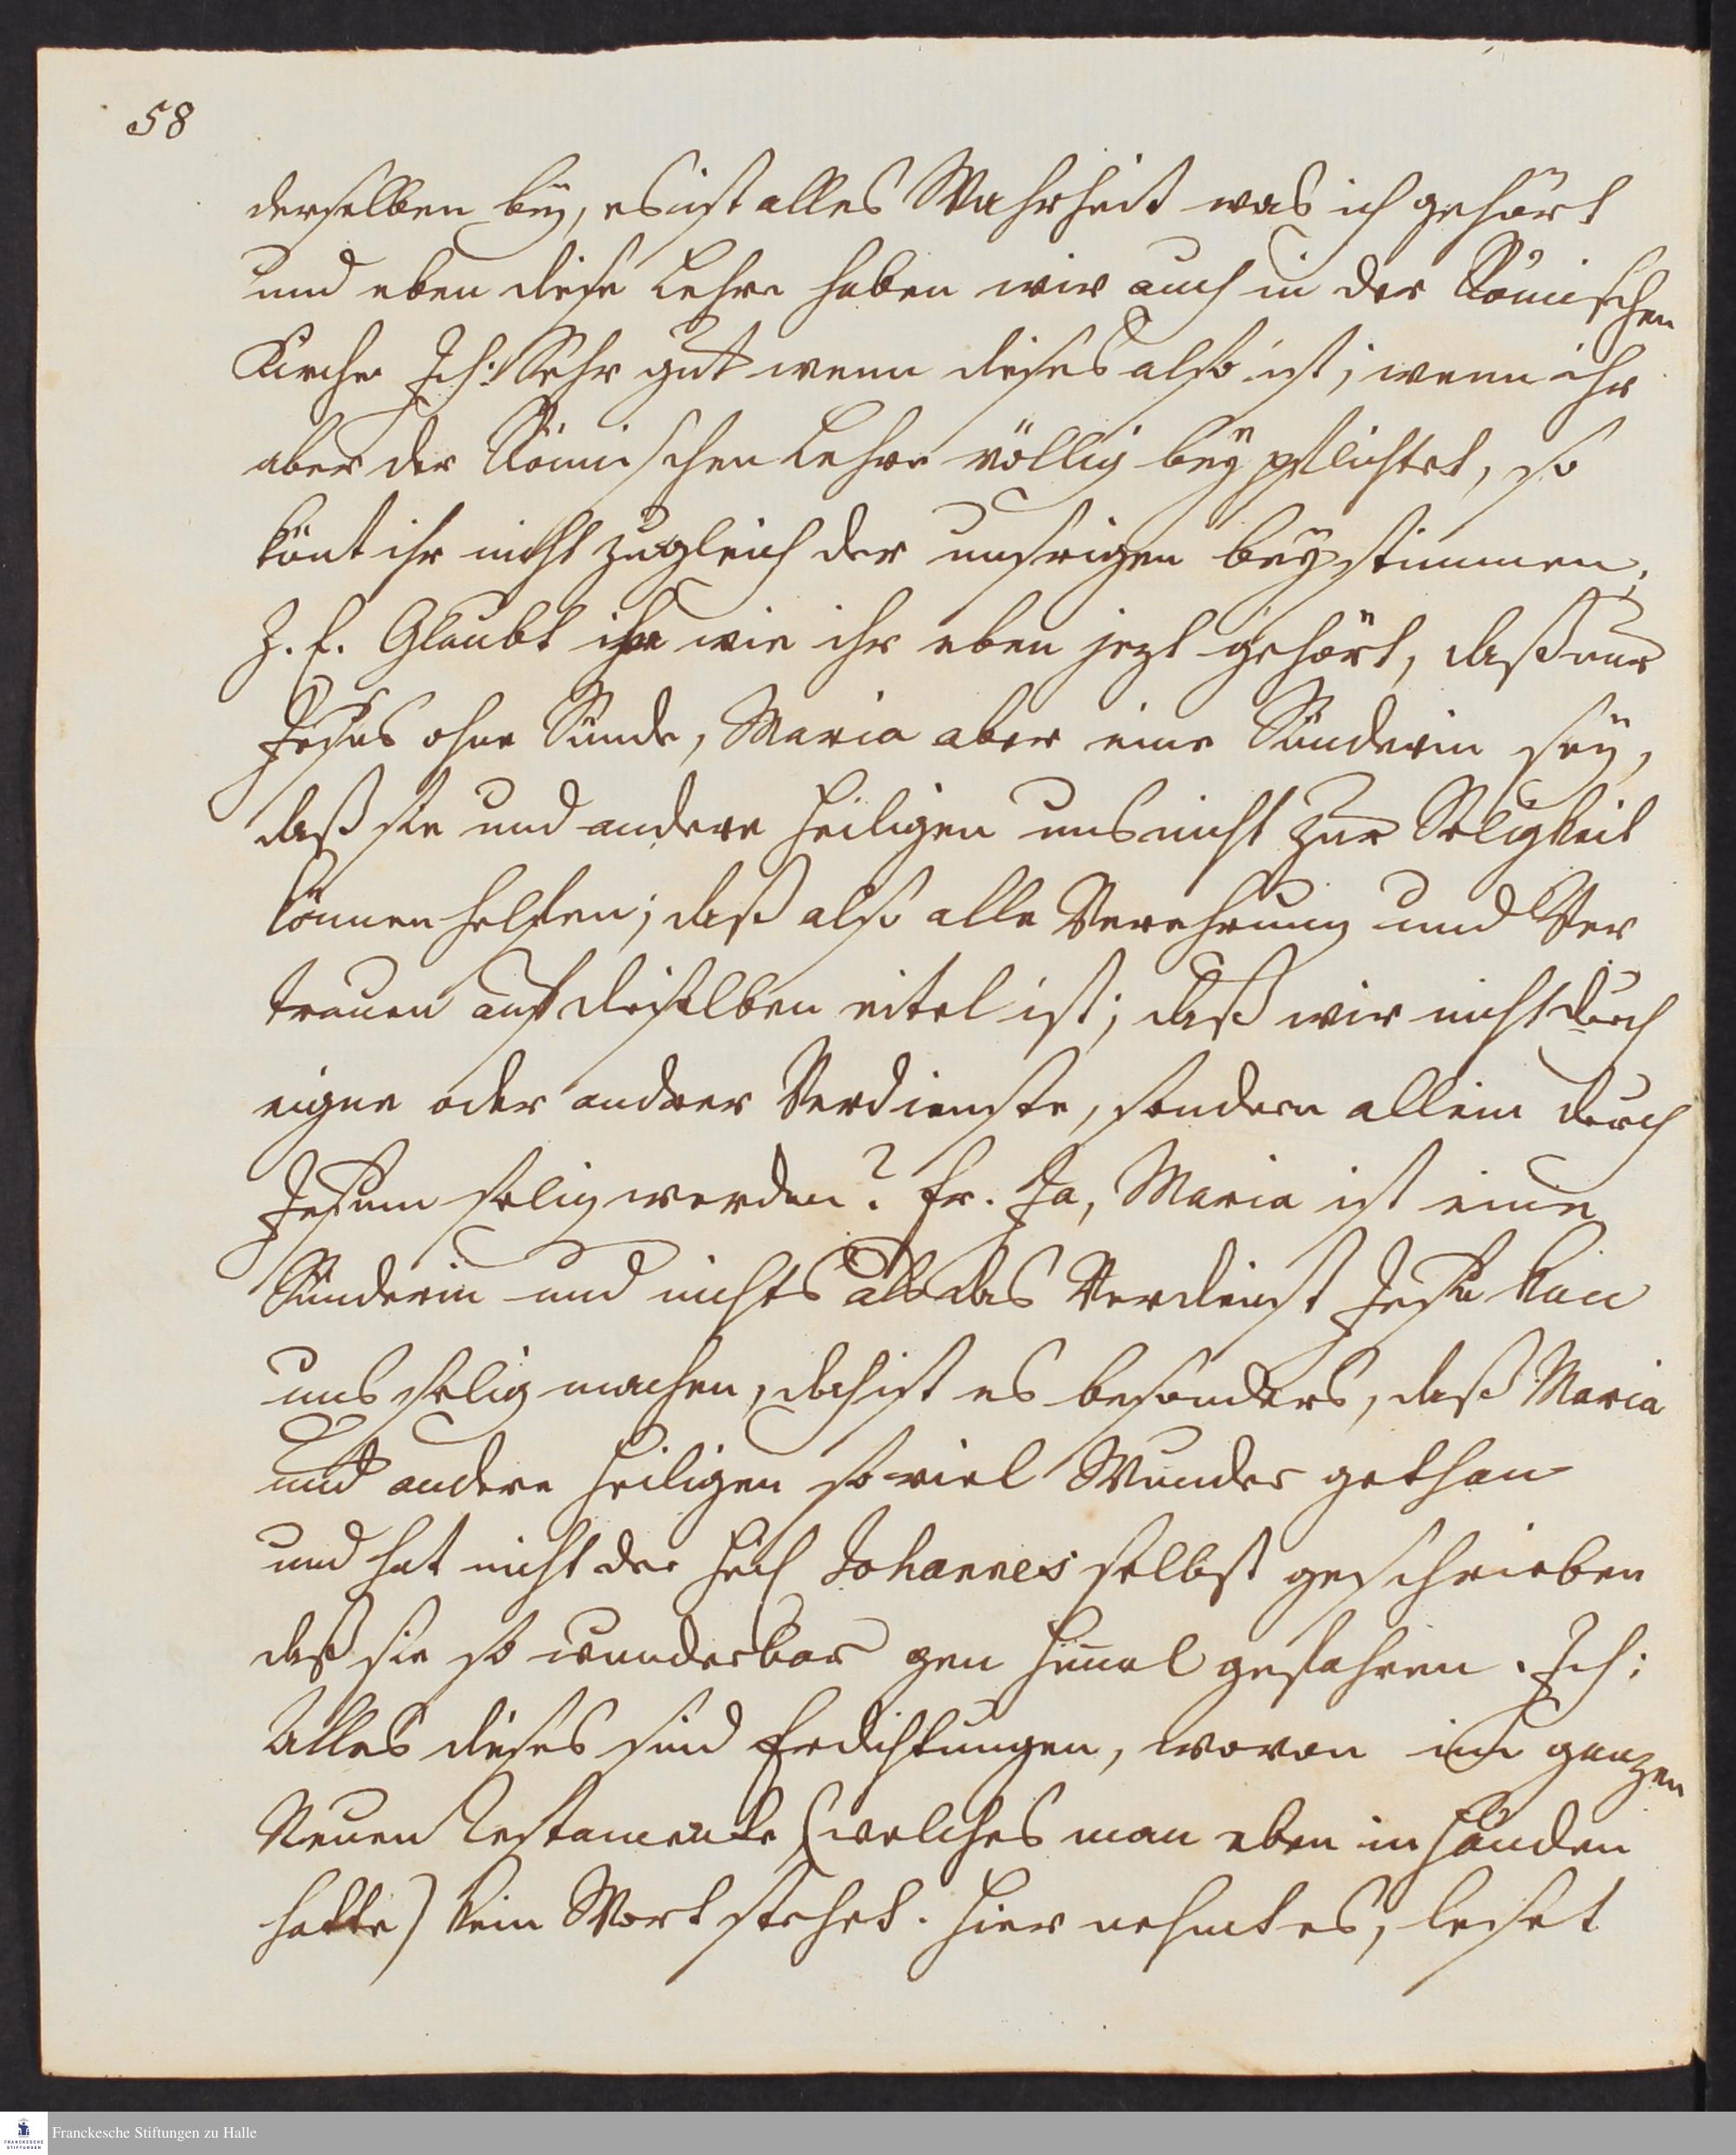 58
derselben beÿ, es ist alles Wahrheit was ich gehört
und eben diese Lehre haben wir auch in der Römischen
Kirche Ich: Sehr gut wenn dieses also ist; wenn ihr
aber der Römischen Lehre völlig beÿ pflichtet, so
könt ihr nicht zugleich der unsrigen beÿstimmen;
Z. E. Glaubt ihr wie ihr eben jezt gehört, daß nur
Jesus ohne Sünde, Maria aber eine Sünderin seÿ,
daß sie und andere Heiligen uns nicht zur Seligkeit
können helfen; daß also alle Verehrung und Ver
trauen auf dieselben eitel ist; daß wir nicht durch
eigne oder andrer Verdienste, sondern allein durch
Jesum selig werden? Er. Ja, Maria ist eine
Sünderin und nichts als das Verdienst Jesu kan
uns selig machen, doch ist es besonders, daß Maria
und andere Heiligen so viel Wunder gethan
und hat nicht der Heil Johannes selbst geschrieben
daß sie so wunderbar gen Himel gefahren. Ich:
Alles dieses sind Erdichtungen, wovon im ganzen
Neuen Testamente (welches man eben in Händen
hatte) kein Wort stehet. Hier nehmt es, leset
Franckesche Stiftungen zu Halle
FRANCKESCHE
STIFTUNGEN